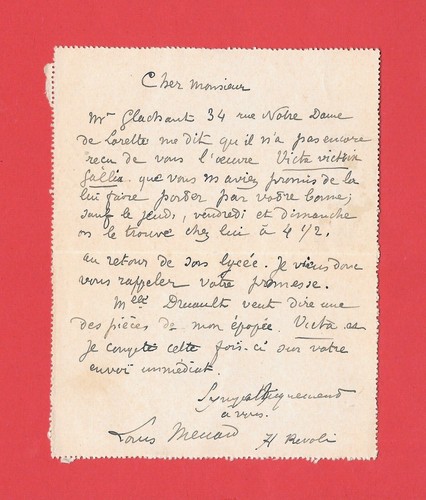 Cher Monsieur
Mr Glachant 34 rue Notre Dame
de Lorette me dit qu'il n'a pas encore
reçu de vous l'œuvre Victa victrix
Gallia que vous m'aviez promis de la
lui faire porter par votre bonne;
sauf le jeudi, vendredi et dimanche
on le trouve chez lui à 4 1/2.
au retour de son lycée. Je viens donc
vous rappeler votre promesse.
Melle Druault veut dire une
des pièces de mon épopée. Victa
Je compte cette fois-ci sur votre
envoi immédiat.
Sympathiquement
à vous.
Louis Menard Rivoli